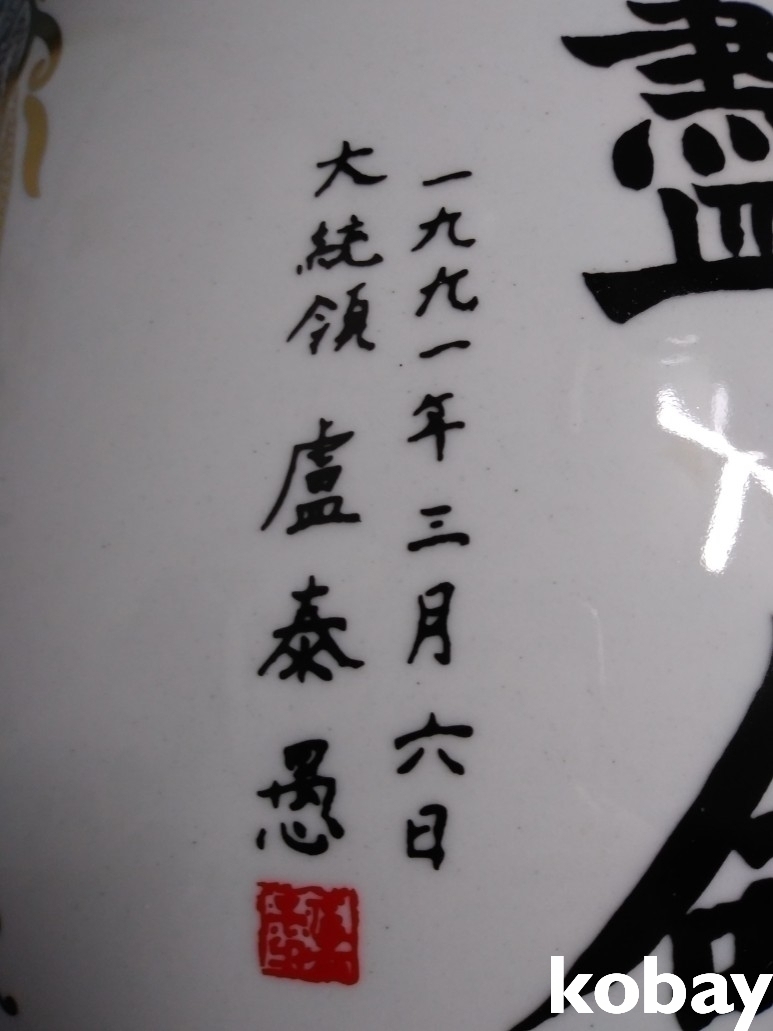 盡
一九九一年三月六日
大統領 盧泰愚
kobay